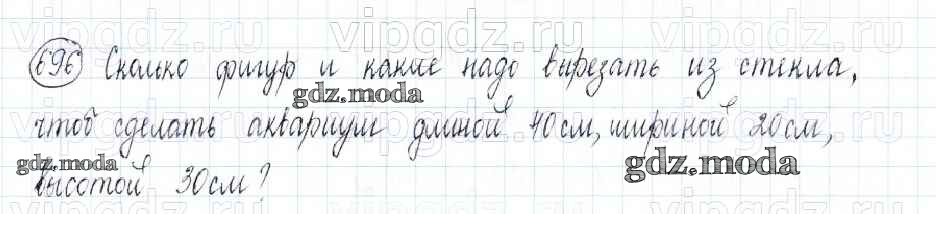 vipgdz.com vipgdz.com vipgdz.com
696 Сколько фигур и какие надо вырезать из стекла,
gdz.moda
чтоб сделать аквариум длиной 40см, шириной 20см,
gdz.moda gdz.moda
высотой 30см?